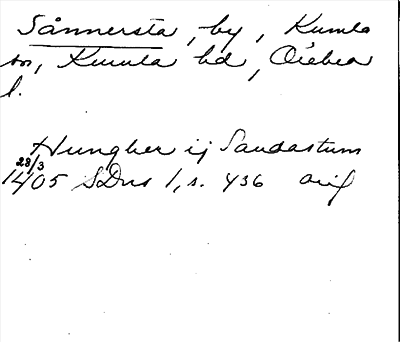 Sånnersta, by, Kumla
sn, Kumla hd, Örebro
l.
Hungher ij Sandastum
28/3
1405 SDns 1, s. 436 orig